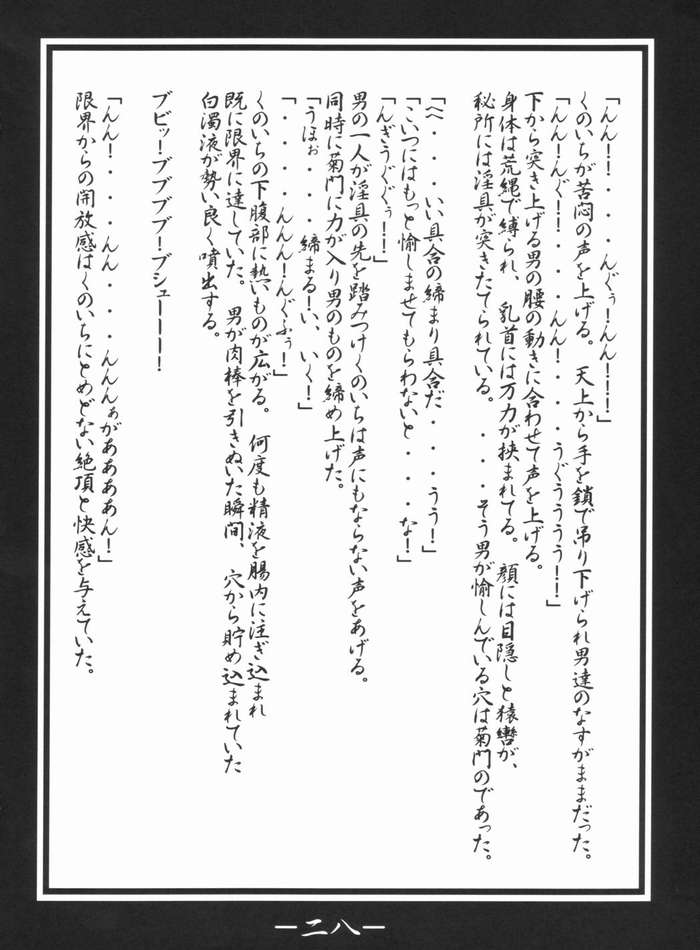 「んん！！・・・んぐぅ！んん！ーー！」
くのいちが苦悶の声を上げる。　天上から手を鎖で吊り下げられ男達のなすがままだった。
「んん！んぐ！！・・・んん！・・・うぐうううう！！」
下から突き上げる男の腰の動きに合わせて声を上げる。
身体は荒縄で縛られ、　乳首には万力が挟まれてる。　顔には目隠しと猿轡が、
秘所には淫具が突きたてられている。　・・・そう男が愉しんでいる穴は菊門のであった。
「へ・・・いい具合の締まり具合だ・・・うう！」
「こいつにはもっと愉しませてもらわないと・・・な！」
「んぎうぐぐぅ！！」
男の一人が淫具の先を踏みつけくのいちは声にもならない声をあげる。
同時に菊門に力が入り男のものを締め上げた。
「うほぉ・・・締まる！い、いく！」
「・・・・んんん！んぐふぅ！」
くのいちの下腹部に熱いものが広がる。　何度も精液を腸内に注ぎ込まれ
既に限界に達していた。　男が肉棒を引きぬいた瞬間、　穴から貯め込まれていた
白濁液が勢い良く噴出する。
ブビッ！ブブブブ！ブシューーー！
「んん！・・・んん・・・んんんぁがああああん！」
限界からの開放感はくのいちにとめどない絶頂と快感を与えていた。
－二八－